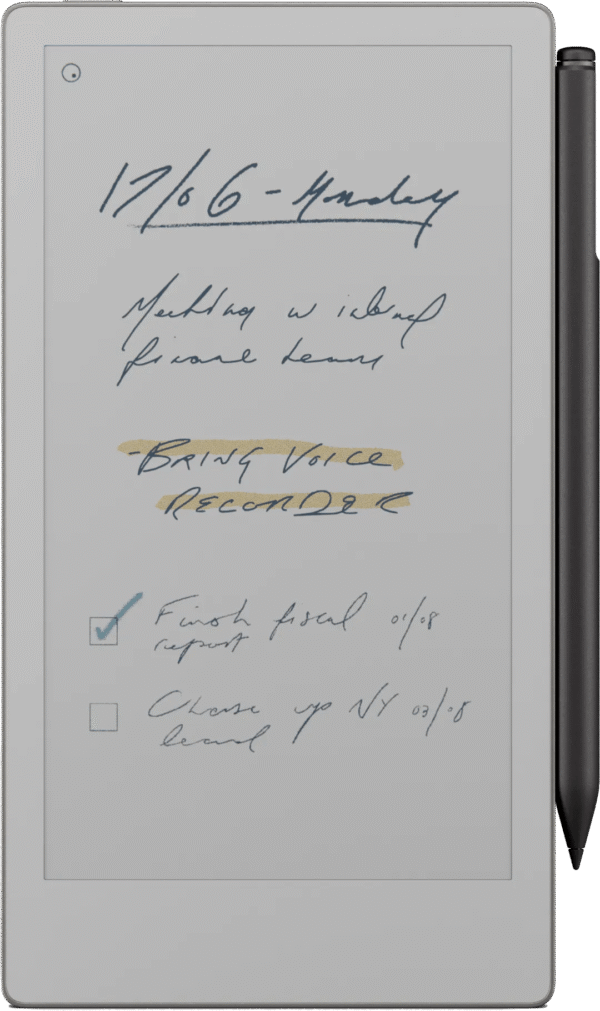 17/06 - Monday
Meeting w internal
finance team
- BRING VOICE
RECORDER
Finish fiscal 01/08
report
Chase up NY 03/08